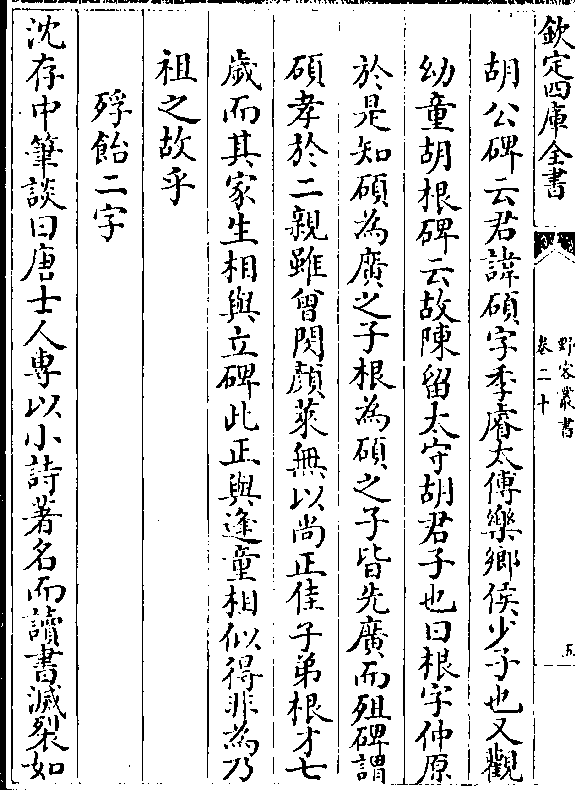 欽定四庫全書
野客叢書
卷二十
五
胡公碑云君諱碩字季睿太傅樂鄉侯少子也又觀
幼童胡根碑云故陳留太守胡君子也曰根字仲原
於是知碩為廣之子根為碩之子皆先廣而殂碑謂
碩孝於二親雖曾閔顏萊無以尚正佳子弟根才七
歲而其家生相與立碑此正與逢童相似得非為乃
祖之故乎
殍飴二字
沈存中筆談曰唐士人專以小詩著名而讀書滅裂如